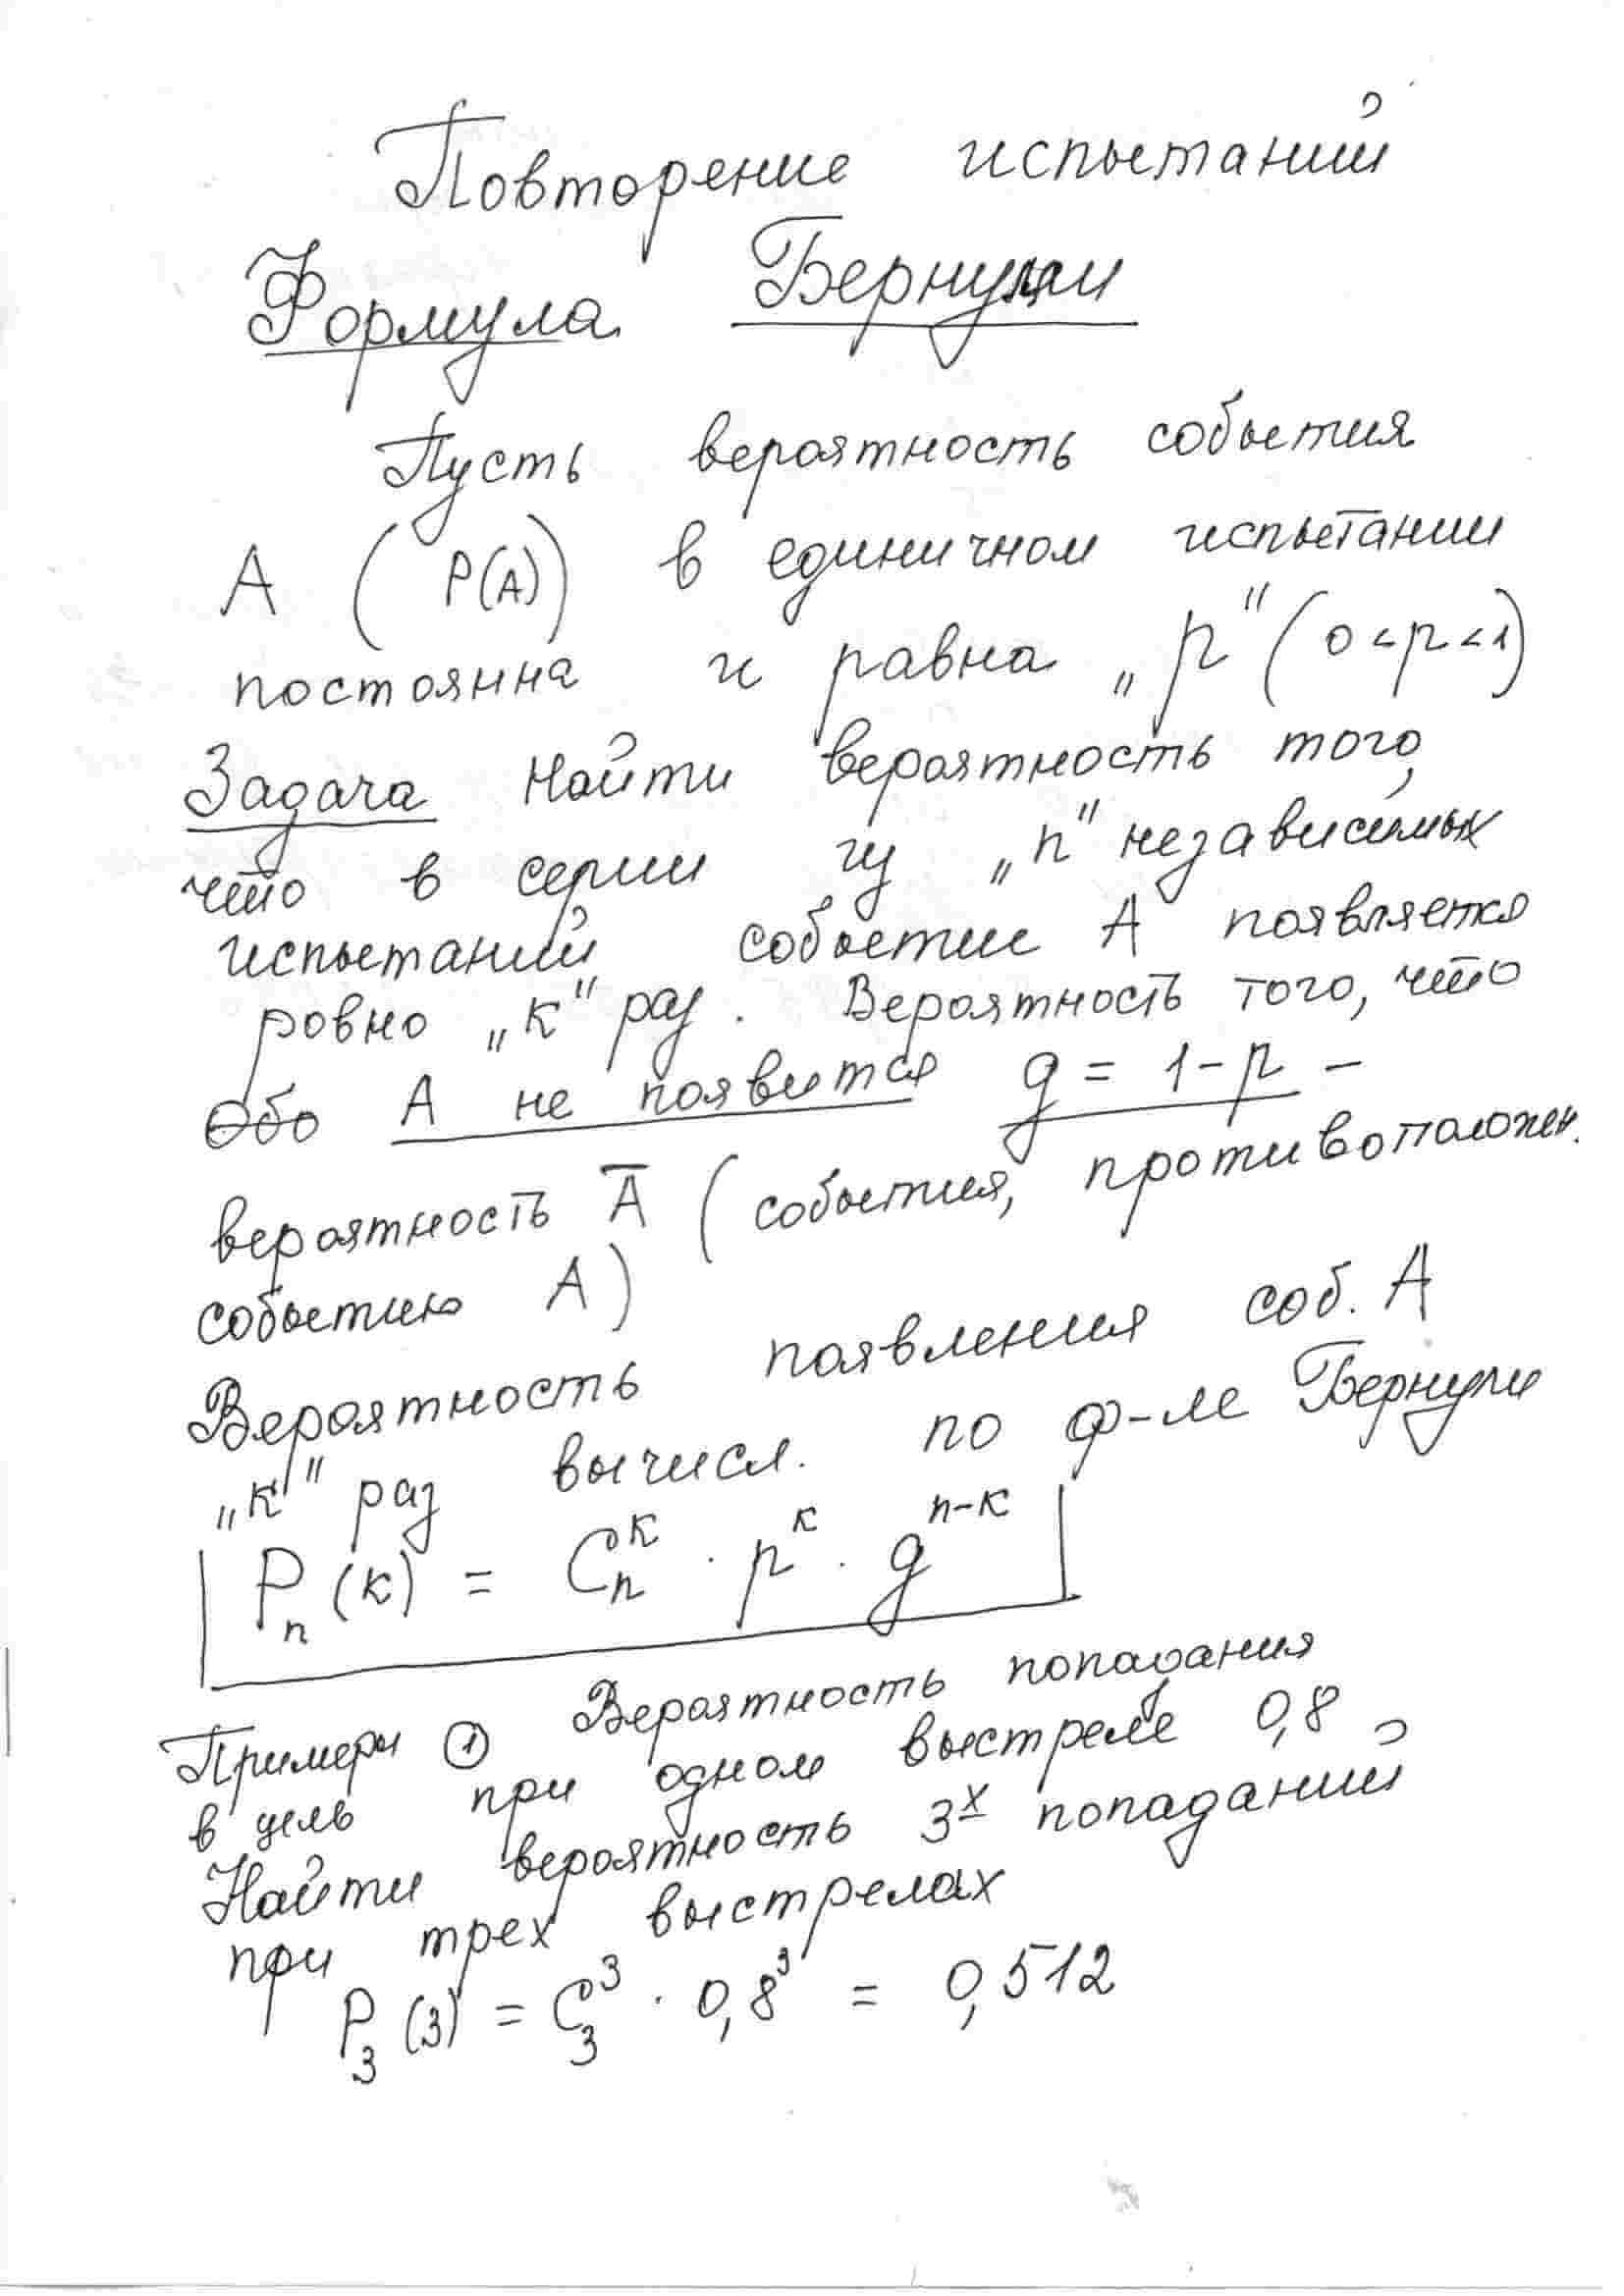 Повторение испытаний
Формула Бернулли
Пусть вероятность события
A ( P(A) ) в единичном испытании
постоянна и равна „p" ( 0 < p < 1 )
Задача Найти вероятность того,
что в серии из „n" независимых
испытаний событие A появляется
ровно „к" раз. Вероятность того, что
Обо A не появится q = 1 - p –
вероятность A̅ ( события, противополож.
событию A )
Вероятность появления соб. A
„к" раз вычисл. по ф-ле Бернулли
Pₙ (к) = Cₙᵏ · pᵏ · qⁿ⁻ᵏ
Примеры ① Вероятность попадания
в цель при одном выстреле 0,8
Найти вероятность 3х попаданий
при трех выстрелах
P₃ (3) = C₃³ · 0,8³ = 0,512